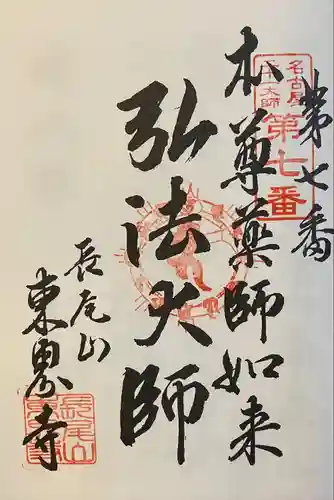 名古屋
二十一大師
第七番
第七番
本尊薬師如来
弘法大師
長尾山
東界寺
長尾山